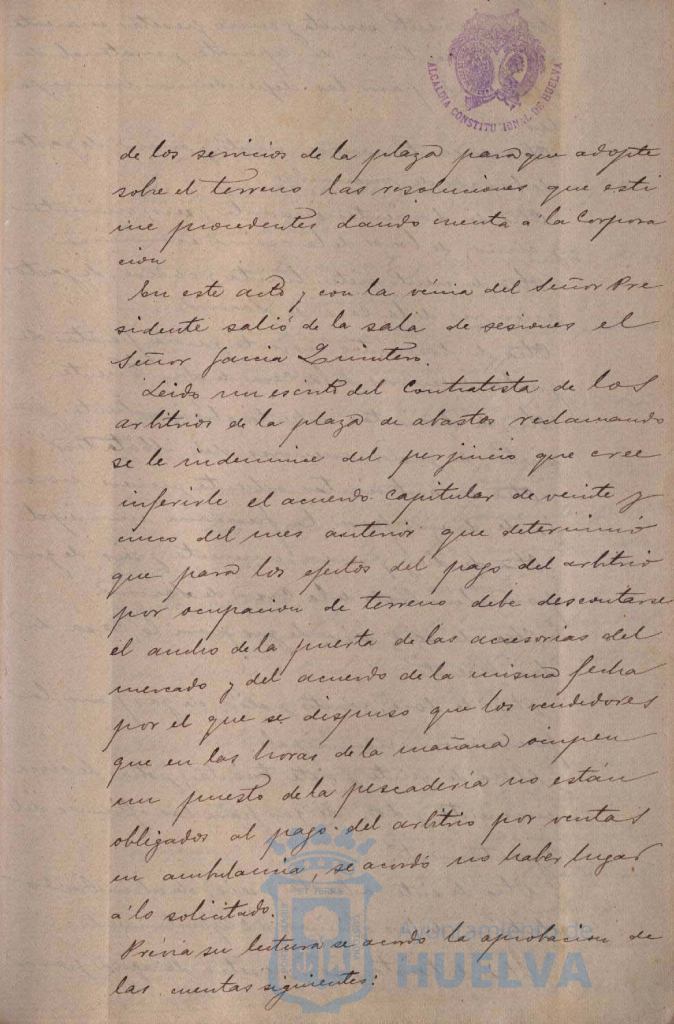 ALCALDIA CONSTITUCIONAL DE HUELVA
de los servicios de la plaza para que adopte
sobre el terreno las resoluciones que esti
me procedentes dando cuenta á la Corpora
cion
En este acto y con la vénia del Señor Pre
sidente salió de la sala de sesiones el
Señor Garcia Quintero.
Leido un escrito del Contratista de los
arbitrios de la plaza de abastos reclamando
se le indemnice del perjuicio que cree
inferirle el acuerdo capitular de veinte y
cinco del mes anterior que determinó
que para los efectos del pago del arbitrio
por ocupacion de terreno debe descontarse
el ancho de la puerta de las accesorias del
mercado y del acuerdo de la misma fecha
por el que se dispuso que los vendedores
que en las horas de la mañana ocupen
un puesto de la pescadería no están
obligados al pago del arbitrio por ventas
en ambulancia, se acordó no haber lugar
á lo solicitado.
Prévia su lectura se acordó la aprobacion de
las cuentas siguientes:
HUELVA